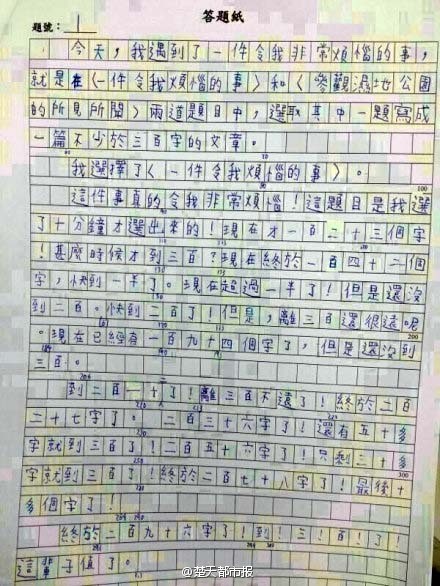 答題紙
題號：1
今天，我遇到了一件令我非常煩惱的事，
就是在〈一件令我煩惱的事〉和〈參觀濕地公園
的所見所聞〉兩道題目中，選取其中一題寫成
一篇不少於三百字的文章。
我選擇了〈一件令我煩惱的事〉。
100
這件事真的令我非常煩惱！這題目是我選
了十分鐘才選出來的！現在才一百二十三個字
！甚麼時候才到三百？現在終於一百四十二個
字，快到一半了。現在超過一半了！但是還沒
到二百。快到二百了！但是，離三百還很遠。
200
。現在已經有一百九十四個字了，但是還沒到
三百。
到二百一十了！離三百不遠了！終於二百
二十七字了。二百三十六字了！還有五十多
字就到三百了！二百五十六字了！只剩三十多
300
字就到三百了！終於二百七十八字了！最後十
多個字了！
終於二百九十六字了！到！三！百！了！
這 子值了。
@楚天都市报